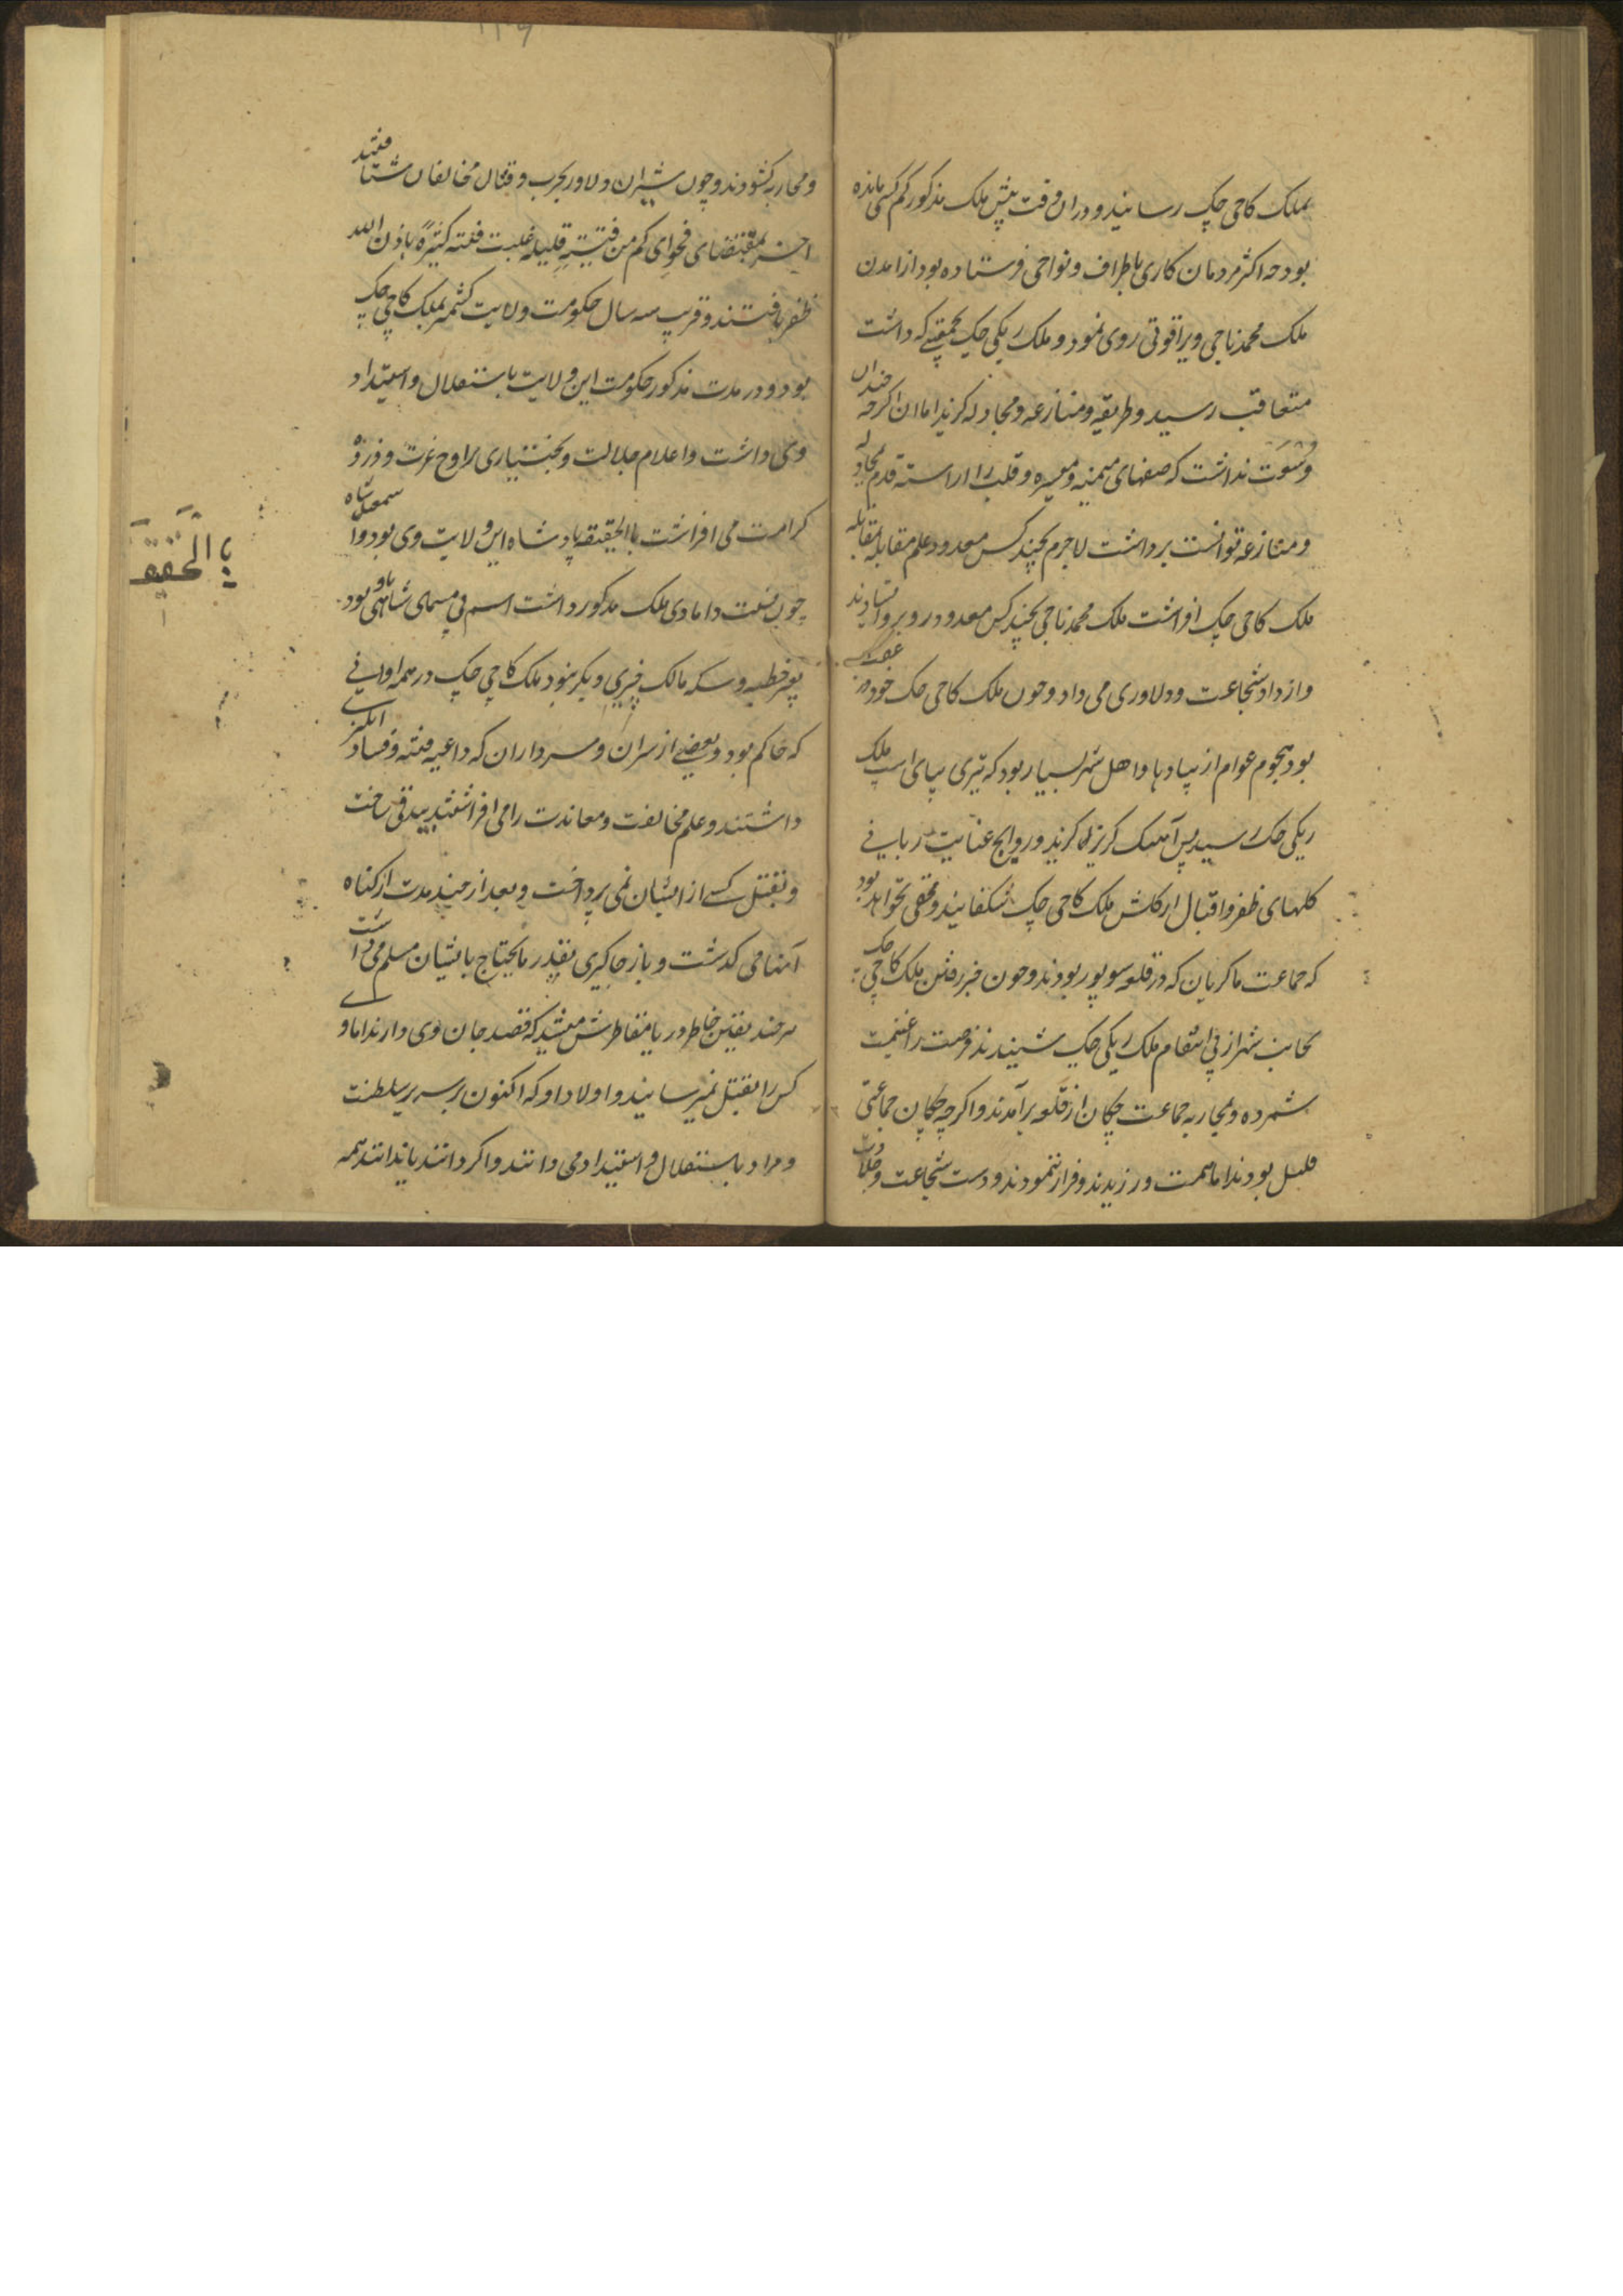 بملک کاجی چک رسانید و دران وقت پیش ملک مذکور کم کسی مانده
بود چه اکثر مردمان کاری باطراف و نواحی فرستاده بود از امدن
ملک محمد ناجی ویرا قوتی روی نمود و ملک ریکی چک بحمقیتے که داشت
متعاقب رسید و طریقه و منازعه و مجادله کزید اما ان اکرچه چندان
وسعت نداشت که صفهای میمنه و میسره و قلب را اراسته قدم مجادله
و منازعه توانست برداشت لاجرم بچند کس معدود علم مقابله بمقابله
ملک کاجی چک افراشت ملک محمد ناجی بچند کس معدود در روبرو افتادند
و از داد شجاعت و دلاوری می داد و چون ملک کاجی چک خود در عقب
بود هجوم عوام از پیادها و اهل شهر بسیار بود که تیری بپای اسپ ملک
ریکی چک رسید پس آهنک کریز کزید و روایح عنایت ربانے
کلهای ظفر و اقبال از کلشن ملک کاجی چک شکفانید و مخفی نخواهد بود
که جماعت ماکریان که در قلعه سویپور بودند و چون خبر رفتن ملک کاجی چک
بجانب شهر از پی انتقام ملک ریکی چک شنیدند فرصت را غنیمت
شمرده و بمحاربه جماعت چکان از قلعه برآمدند و اکرچه چکان جماعتی
قلیل بودند اما همت ورزیدند و فرار ننمودند و دست شجاعت و جلادت
و محاربه کشودند و چون شیران دلاور بحرب و قتال مخالفان شتافتند
اخر بمقتضای فحوای کم من فئیةٍ قلیلة غلبت فئته کثیرةً باذن الله
ظفر یافتند و قریب سه سال حکومت ولایت کشمیر بملک کاجی چک
بود و در مدت مذکور حکومت این ولایت باستقلال و استبداد
وی داشت و اعلام جلالت و بختیاری براوج عزت و ذروۀ
کرامت می افراشت باالحقیقه پادشاه این ولایت وی بود و اسمعیل شاه
چون نسبت دامادی ملک مذکور داشت اسم بی مسمای شاهی باو بود
بغیر خطبه و سکه مالک چیزی دیکر نبود ملک کاجی چک در همه اوانے
که حاکم بود و بعضے از سران و سرداران که داعیه فتنه و فساد انکیزے
داشتند و علم مخالفت و معاندت را می افراشتند بیدق ساخت
و بقتل کسے از ایشان نمی پرداخت و بعد از چند مدت از کناه
آنها می کذشت و باز جاکیری بقدر مایحتاج بایشان مسلم می داشت
هرچند یقین خاطر دریا مقاطرش میشد که قصد جان وی دارند اما وے
کس را بقتل نمیرسانید و اولاد او که اکنون بر سریر سلطنت
و مراد باستقلال و استبداد می دانند و اکر دانند یا ندانند همه
باالحقیقه